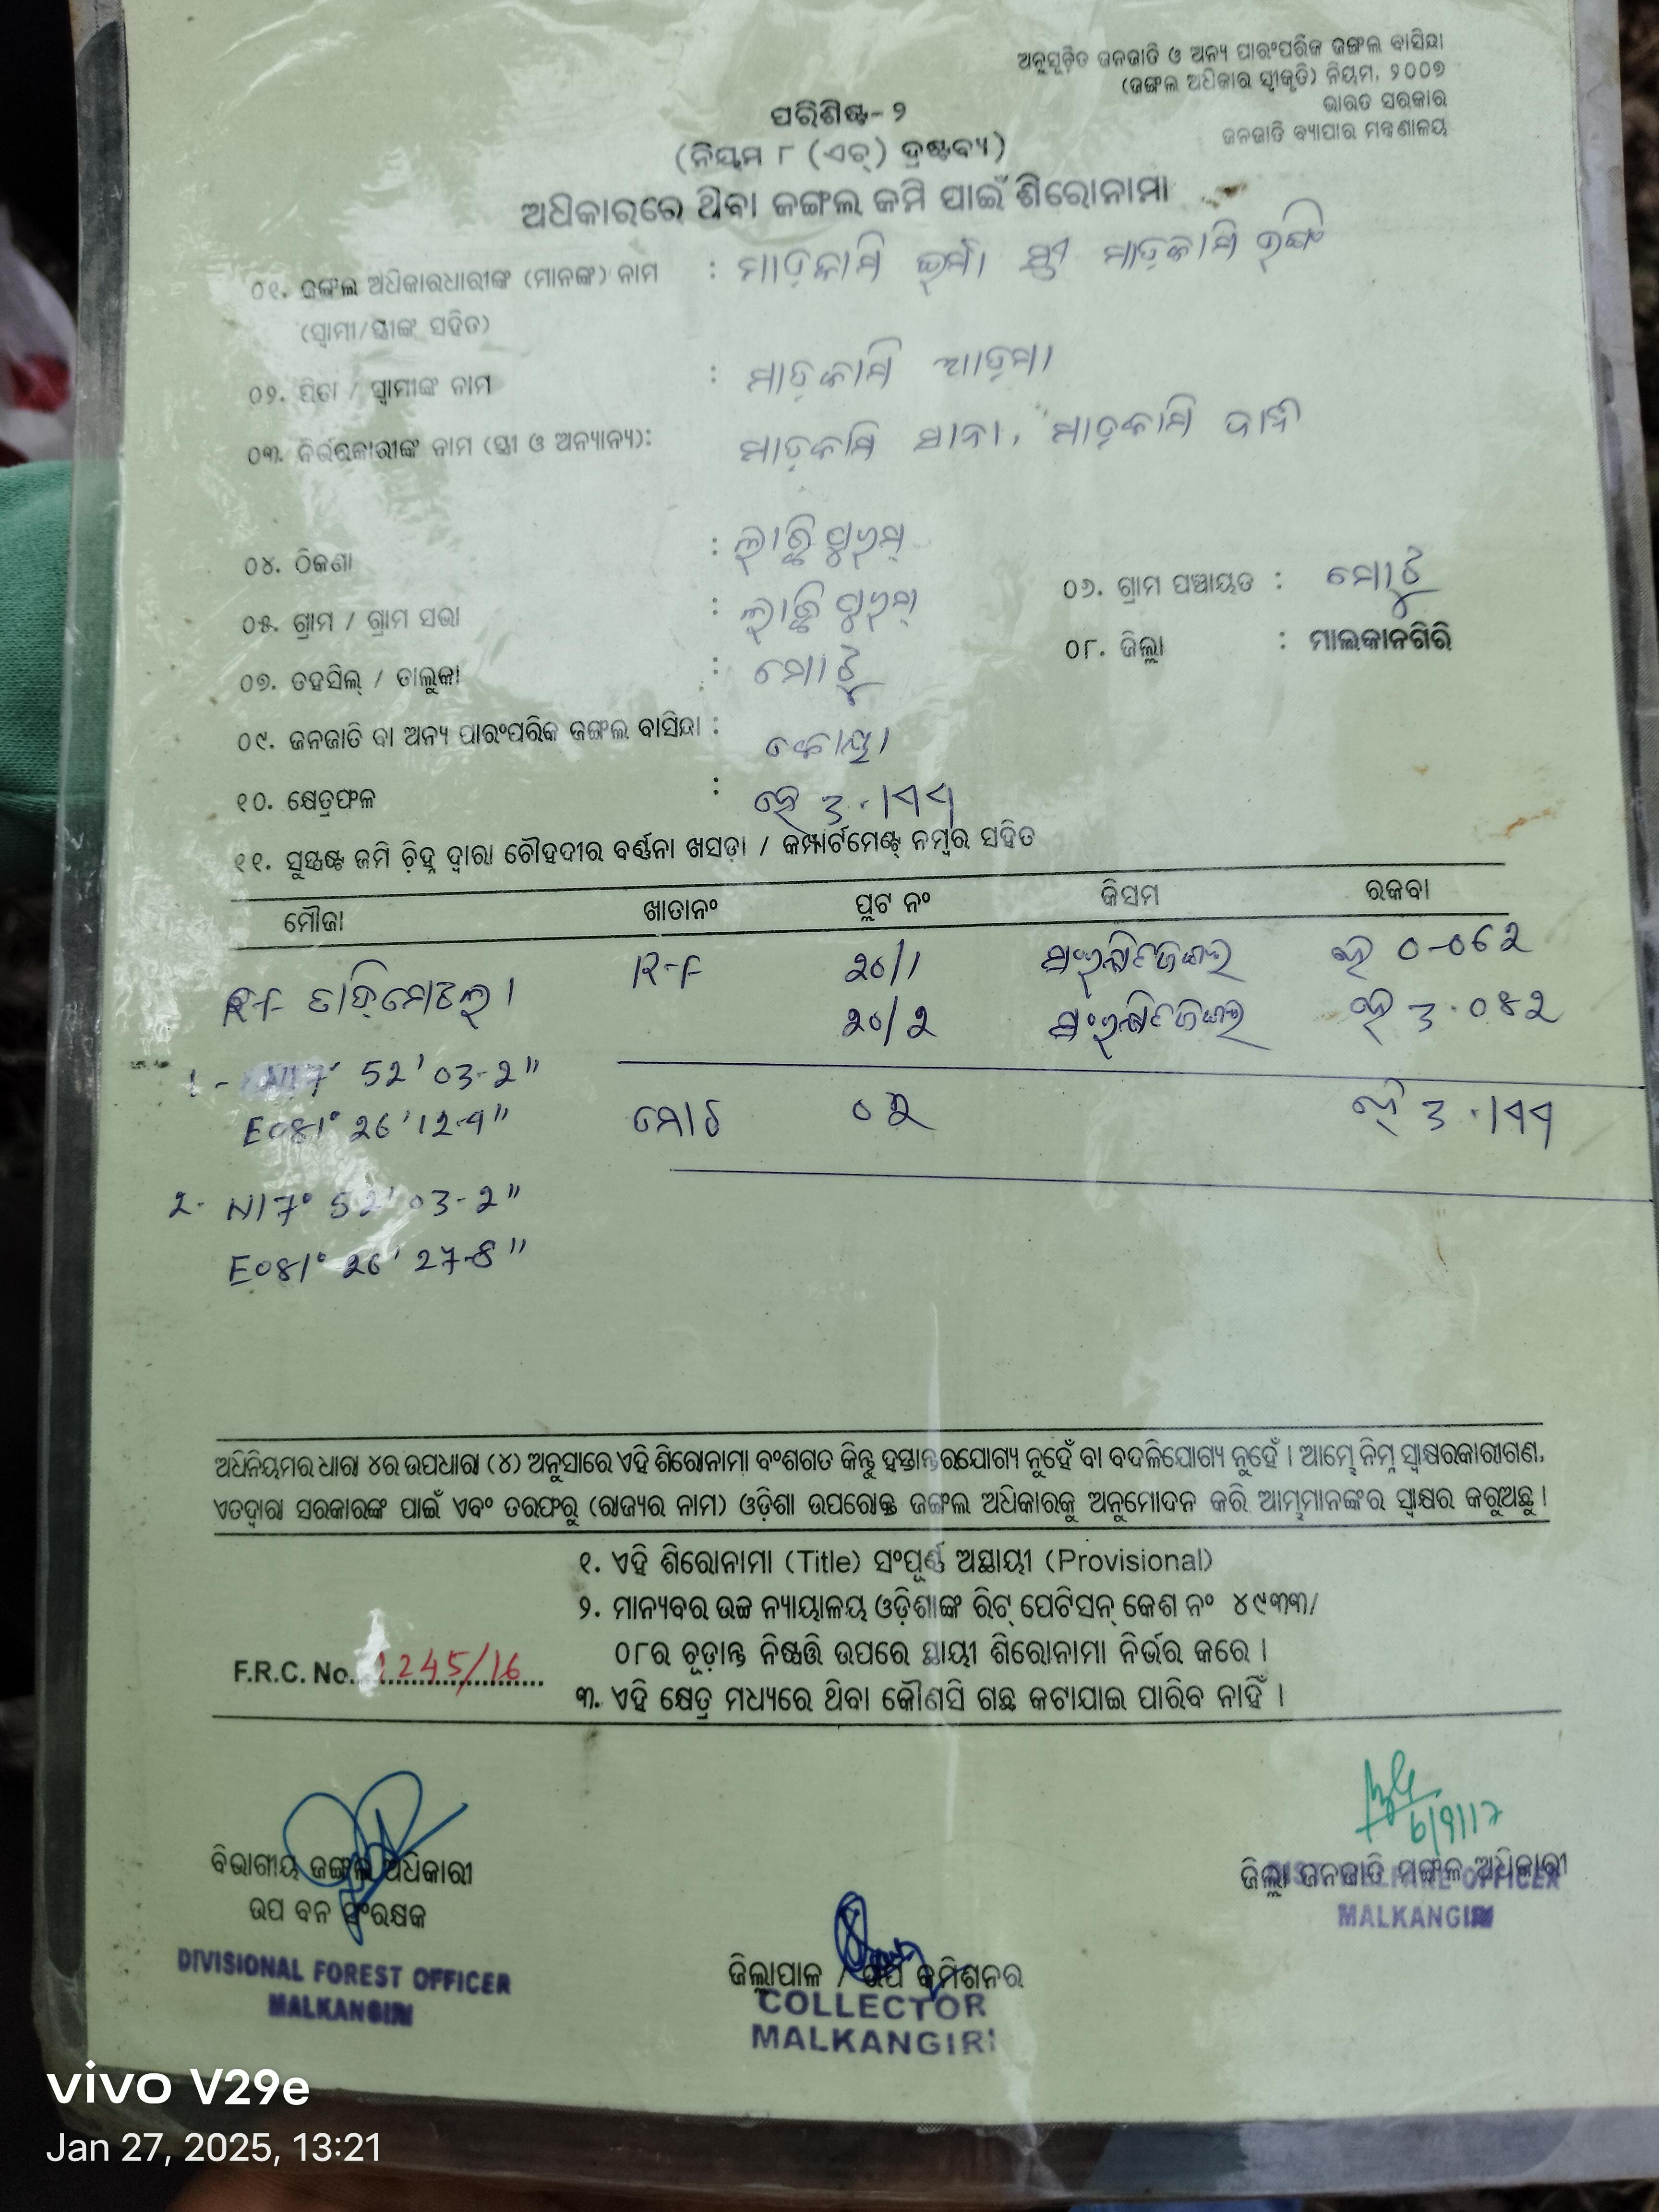 ଅନୁସୂଚିତ ଜନଜାତି ଓ ଅନ୍ୟ ପାରଂପରିକ ଜଙ୍ଗଲ ବାସିନ୍ଦା
(ଜଙ୍ଗଲ ଅଧିକାର ସ୍ୱୀକୃତି) ନିୟମ, ୨୦୦୭
ଭାରତ ସରକାର
ଜନଜାତି ବ୍ୟାପାର ମନ୍ତ୍ରଣାଳୟ
ପରିଶିଷ୍ଟ- ୨
(ନିୟମ ୮ (ଏଚ୍) ଦ୍ରଷ୍ଟବ୍ୟ)
ଅଧିକାରରେ ଥିବା ଜଙ୍ଗଲ ଜମି ପାଇଁ ଶିରୋନାମା
୦୧. ଜଙ୍ଗଲ ଅଧିକାରଧାରୀଙ୍କ (ମାନଙ୍କ) ନାମ : ମାଡ଼କାମି ସ୍ତ୍ରୀ ମାଡ଼କାମି
(ସ୍ୱାମୀ/ସ୍ତ୍ରୀଙ୍କ ସହିତ)
୦୨. ପିତା / ସ୍ୱାମୀଙ୍କ ନାମ : ମାଡ଼କାମି ଆଡ଼ମା
୦୩. ନିର୍ଭରକାରୀଙ୍କ ନାମ (ସ୍ତ୍ରୀ ଓ ଅନ୍ୟାନ୍ୟ): ମାଡ଼କାମି ମାଡ଼କାମି
୦୪. ଠିକଣା :
୦୫. ଗ୍ରାମ / ଗ୍ରାମ ସଭା :
୦୬. ଗ୍ରାମ ପଞ୍ଚାୟତ : ମୋଟୁ
୦୭. ତହସିଲ୍ / ତାଲୁକା : ମୋଟୁ
୦୮. ଜିଲ୍ଲା : ମାଲକାନଗିରି
୦୯. ଜନଜାତି ବା ଅନ୍ୟ ପାରଂପରିକ ଜଙ୍ଗଲ ବାସିନ୍ଦା : କୋୟା
୧୦. କ୍ଷେତ୍ରଫଳ : ହେ 3.144
୧୧. ସୁସ୍ପଷ୍ଟ ଜମି ଚିହ୍ନ ଦ୍ୱାରା ଚୌହଦୀର ବର୍ଣ୍ଣନା ଖସଡ଼ା / କମ୍ପାର୍ଟମେଣ୍ଟ୍ ନମ୍ବର ସହିତ
ମୌଜା ଖାତାନଂ ପ୍ଲଟ ନଂ କିସମ ରକବା
R-F R-F 20/1 ହେ 0-062
20/2 ହେ 3.082
1- N17° 52' 03-2"
E081° 26' 12-9"
ମୋଟ 02 ହେ 3.144
2- N17° 52' 03-2"
E081° 26' 27-8"
ଅଧିନିୟମର ଧାରା ୪ର ଉପଧାରା (୪) ଅନୁସାରେ ଏହି ଶିରୋନାମା ବଂଶଗତ କିନ୍ତୁ ହସ୍ତାନ୍ତରଯୋଗ୍ୟ ନୁହେଁ ବା ବଦଳିଯୋଗ୍ୟ ନୁହେଁ । ଆମ୍ଭେ ନିମ୍ନ ସ୍ୱାକ୍ଷରକାରୀଗଣ,
ଏତଦ୍ୱାରା ସରକାରଙ୍କ ପାଇଁ ଏବଂ ତରଫରୁ (ରାଜ୍ୟର ନାମ) ଓଡ଼ିଶା ଉପରୋକ୍ତ ଜଙ୍ଗଲ ଅଧିକାରକୁ ଅନୁମୋଦନ କରି ଆମ୍ଭମାନଙ୍କର ସ୍ୱାକ୍ଷର କରୁଅଛୁ ।
୧. ଏହି ଶିରୋନାମା (Title) ସଂପୂର୍ଣ୍ଣ ଅସ୍ଥାୟୀ (Provisional)
୨. ମାନ୍ୟବର ଉଚ୍ଚ ନ୍ୟାୟାଳୟ ଓଡ଼ିଶାଙ୍କ ରିଟ୍ ପେଟିସନ୍ କେଶ ନଂ ୪୯୩୩/
୦୮ର ଚୂଡ଼ାନ୍ତ ନିଷ୍ପତ୍ତି ଉପରେ ସ୍ଥାୟୀ ଶିରୋନାମା ନିର୍ଭର କରେ ।
F.R.C. No. 1245/16
୩. ଏହି କ୍ଷେତ୍ର ମଧ୍ୟରେ ଥିବା କୌଣସି ଗଛ କଟାଯାଇ ପାରିବ ନାହିଁ ।
6/9/17
ବିଭାଗୀୟ ଜଙ୍ଗଲ ଅଧିକାରୀ
ଉପ ବନ ସଂରକ୍ଷକ
DIVISIONAL FOREST OFFICER
MALKANGIRI
ଜିଲ୍ଲାପାଳ / ଉପ କମିଶନର
COLLECTOR
MALKANGIRI
ଜିଲ୍ଲା ଜନଜାତି ମଙ୍ଗଳ ଅଧିକାରୀ
WELFARE OFFICER
MALKANGIRI
vivo V29e
Jan 27, 2025, 13:21